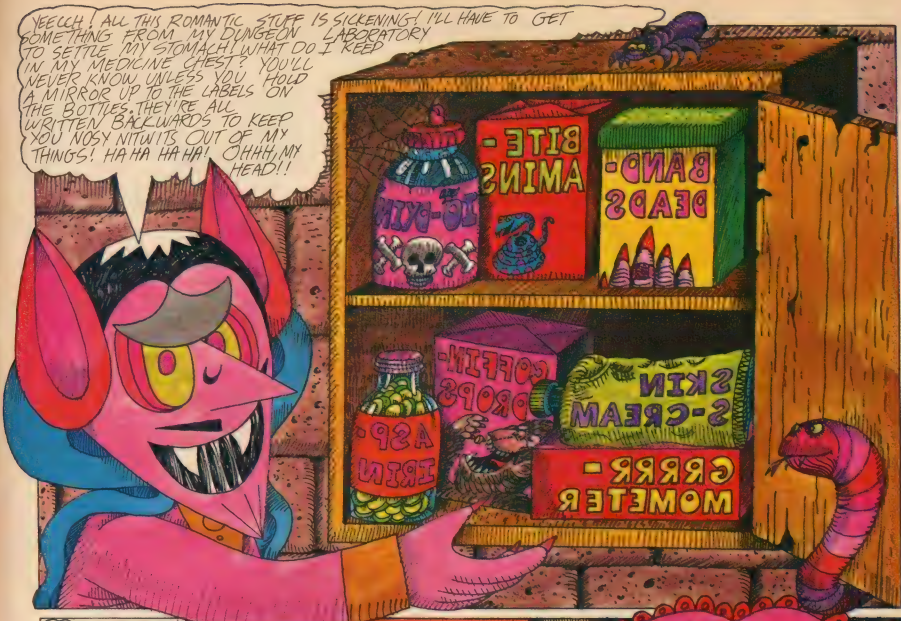 YEECCH! ALL THIS ROMANTIC STUFF IS SICKENING! I'LL HAVE TO GET
SOMETHING FROM MY DUNGEON LABORATORY
TO SETTLE MY STOMACH! WHAT DO I KEEP
IN MY MEDICINE CHEST? YOU'LL
NEVER KNOW, UNLESS YOU HOLD
A MIRROR UP TO THE LABELS ON
THE BOTTLES. THEY'RE ALL
WRITTEN BACKWARDS TO KEEP
YOU NOSY NITWITS OUT OF MY
THINGS! HA HA HA HA! OHHH, MY
HEAD!!
IO-DYIN
BITE-
AMINS
BAND-
DEADS
ASP-
IRIN
COFFIN-
DROPS
SKIN
S-CREAM
GRRRR-
MOMETER